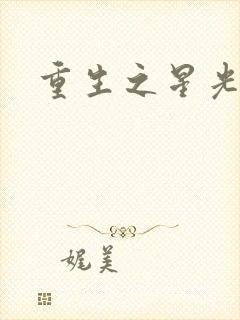 重生之星光
娓美